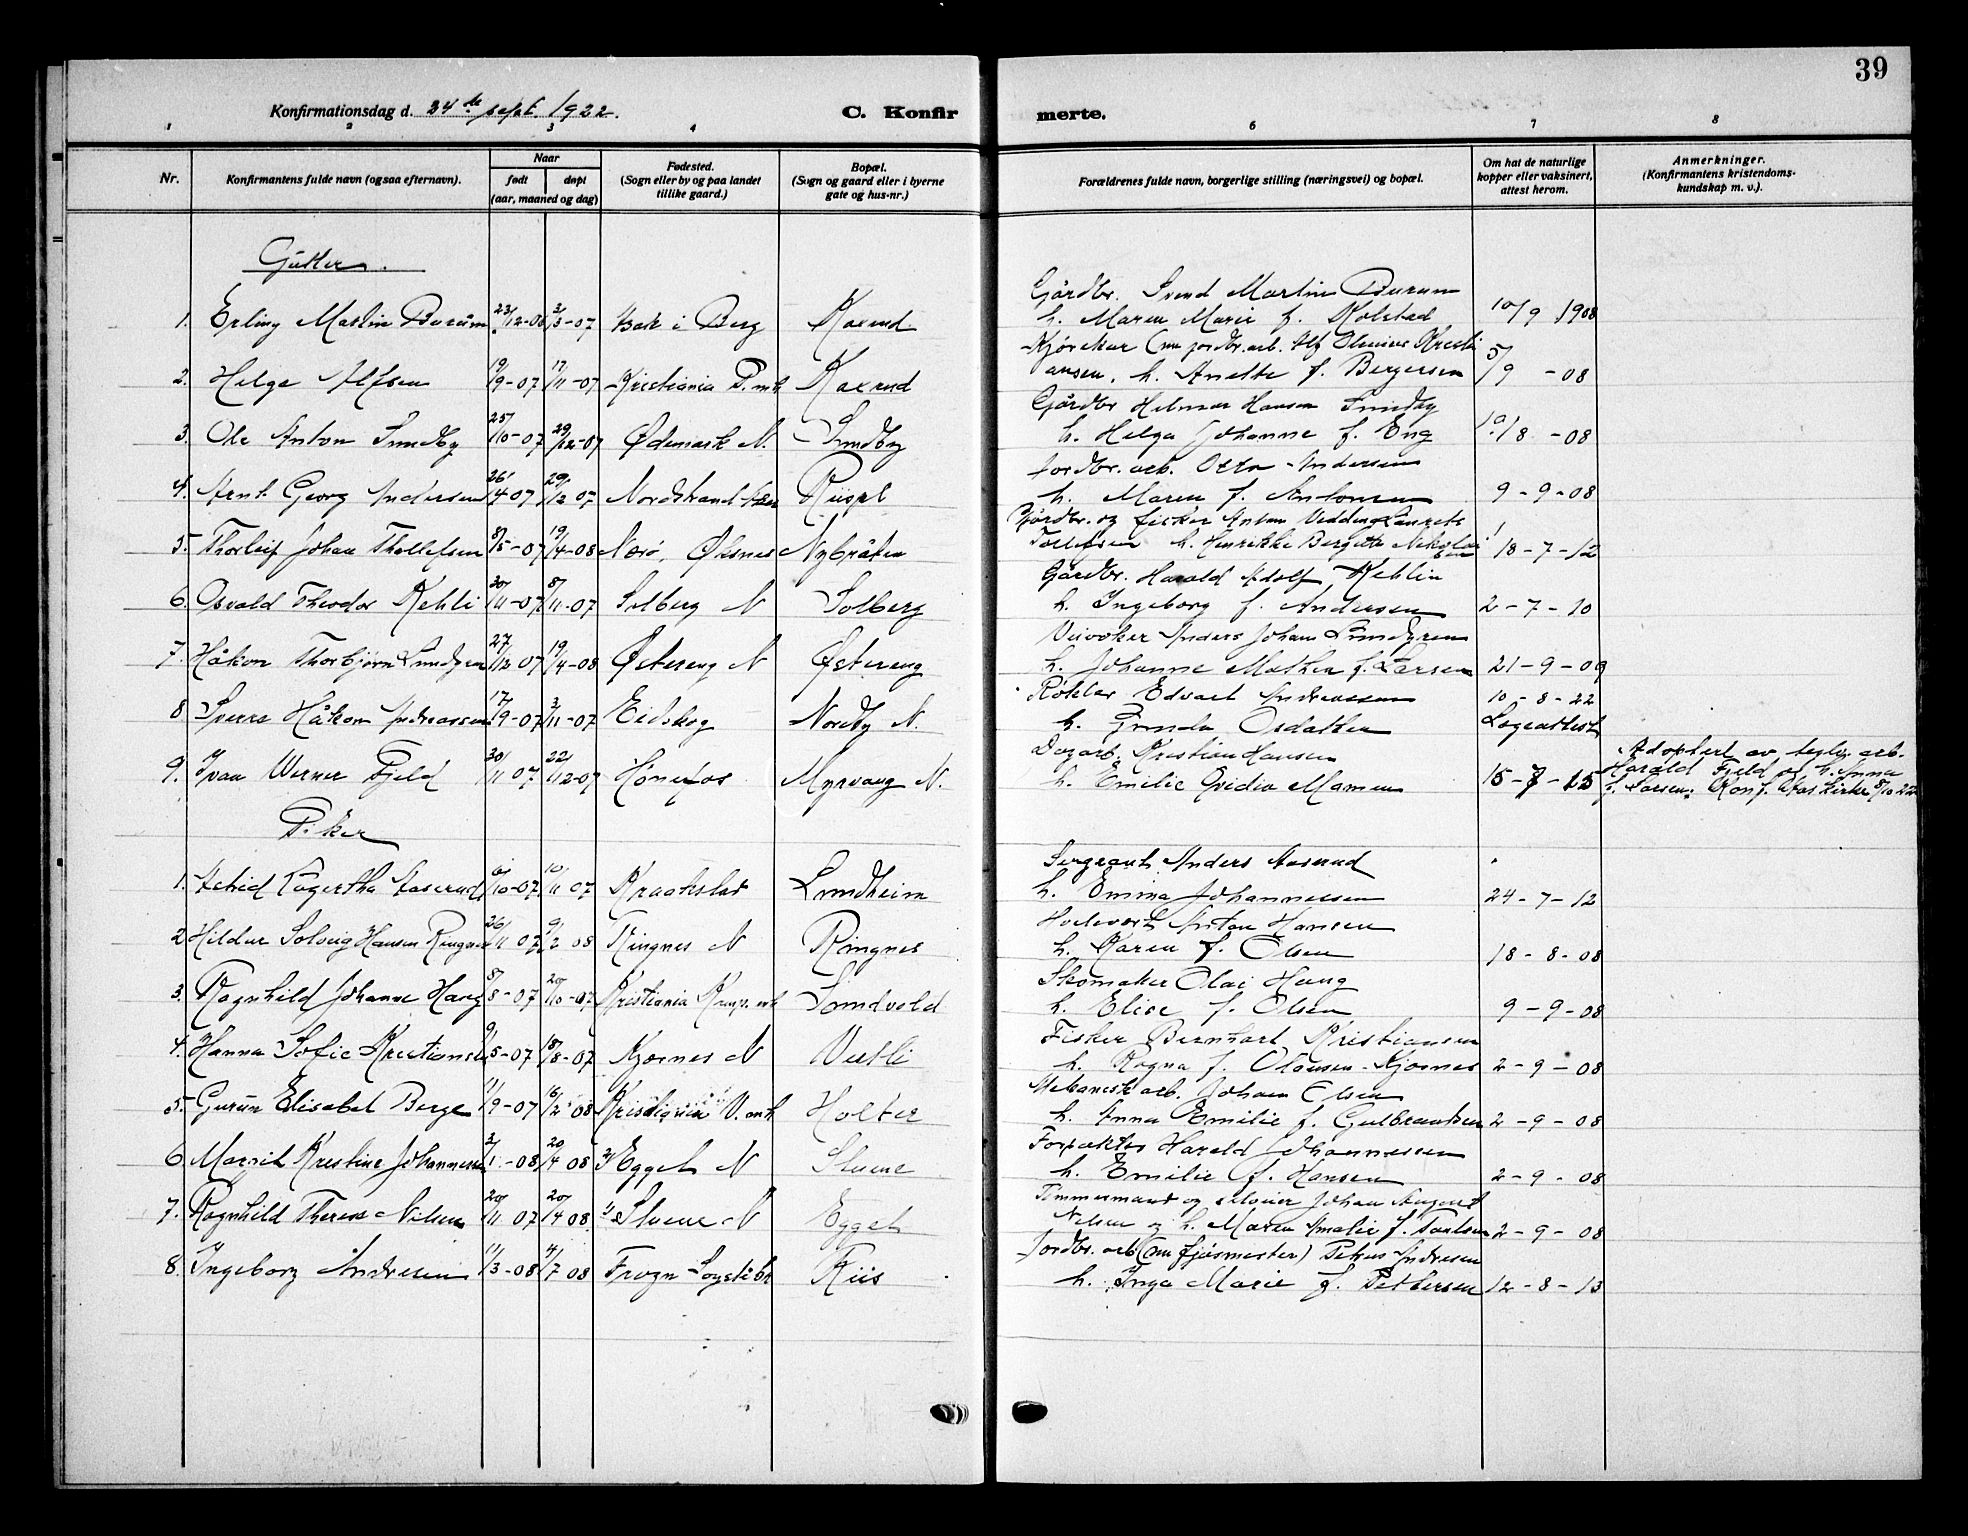 39
Konfirmationsdag d. 24de sept. 1922.
C. Konfirmerte.
1 2 3 4 6 7 8
Nr.
Konfirmantens fulde navn (ogsaa efternavn).
Naar
født
døpt
(aar, maaned og dag)
Fødested.
(Sogn eller by og paa landet
tillike gaard.)
Bopæl.
(Sogn og gaard eller i byerne
gate og hus-nr.)
Forældrenes fulde navn, borgerlige stilling (næringsvei) og bopæl.
Om hat de naturlige
kopper eller vaksinert,
attest herom.
Anmerkninger.
(Konfirmantens kristendoms-
kundskap m. v.).
Gutter.
Gårdbr. Svend Martin Burum
1. Erling Martin Burum 23/12-06 3/3-07 Bak i Berg Kaxrud h. Maren Marie f. Kolstad 10/9 1908
Kjørekar (nu jordbr.arb. Alf Kristi
2. Helge Alfsen 19/9-07 17/11-07 Kristiania P. mk Kaxrud ansen, h. Anette f. Bergersen 5/9 -08
Gårdbr Helmer Hansen Sundby
3. Ole Anton Sundby 25/10-07 29/12-07 Ødemark N. Sundby h. Helga Johanne f. Eng 10/8 -08
Jordbr. arb. Otto Andersen
4. Arnt Georg Andersen 26/4 07 29/12 07 Nordstrand Aker Riispl h. Maren f. Antonsen 9-9-08
Gårdbr. og fisker Anton Vedding Laurets
5. Thorleif Johan Thollefsen 8/5-07 19/4-08 Nærø, Øksnes Nybråten Tollefsen h. Henrikke Bergitte Nikolai 18-7-12
Gårdbr. Harald Adolf Kehlin
6. Osvald Theodor Kehli 20/11-07 8/11-07 Solberg N Solberg h. Ingeborg f. Andersen 2-7-10
Veivokter Anders Johan Lundgren
7. Håkon Thorbjørn Lundgren 27/12 07 19/4-08 Østereng N Østereng h. Johanne Mathea f. Larsen 21-9-09
Røkter Edvart Andreassen 10-8-22
8 Sverre Håkon Andreassen 17/9-07 3/11-07 Eidskog Nordby N. h. Gunda Osdatter Lægeattest
Dagarb. Kristian Hansen Adoptert av teglv. arb.
9. Ivan Werner Fjeld 30/11 07. 22/12-07 Hønefos Myrvang N. h. Emilie Ovidia Mamen 15-7-15 Harald Fjeld og h. Anna
f. Larsen. Konf. Aas kirke 8/10 22
Piker
Sergeant Anders Aaserud
1. Astrid Aaserud 6/10-07 10/11 07 Kraakstad Lundheim h. Emma Johannessen 24-7-12
Anton Hansen
2 Hildur Solveig Hansen Ringnes 26/11 07 9/2 08 Ringnes N Ringnes h. Karen f. Olsen 18-8-08
Skomaker Olai Haug
3. Ragnhild Johanne Haug 8/8-07 20/10-07 Kristiania Sundvold h. Elise f. Olsen 9-9-08
Fisker Bernhart Kristiansen
4. Hanna Sofie Kristiansen 9/5-07 18/8-07 Kjærnes N Vestli h. Ragna f. Olausen-Kjærnes 2-9-08
Mekanisk arb. Johan Olsen
5. Gurun Elisabet Berge 11/9-07 16/2 08 Kristiania V. mk Holter h. Anna Emilie f. Gulbrandsen 2-9-08
Forpakter Harald Johannessen
6 Margit Kristine Johannessen 2/1-08 20/4 08 Egget N Stuene h. Emilie f. Hansen 2-9-08
Tømmermand og Johan August
7. Ragnhild Therese Nilsen 20/11 07 20/4 08. Stuene N Egget Nilsen og h. Maren Amalie f. Paulsen 2-9-08
Jordbr. arb. (nu fjøsmester) Petrus Andresen
8. Ingeborg Andresen 11/3-08 4/7 08 Frogn Riis h. Inga Marie f. Pettersen 12-8-13